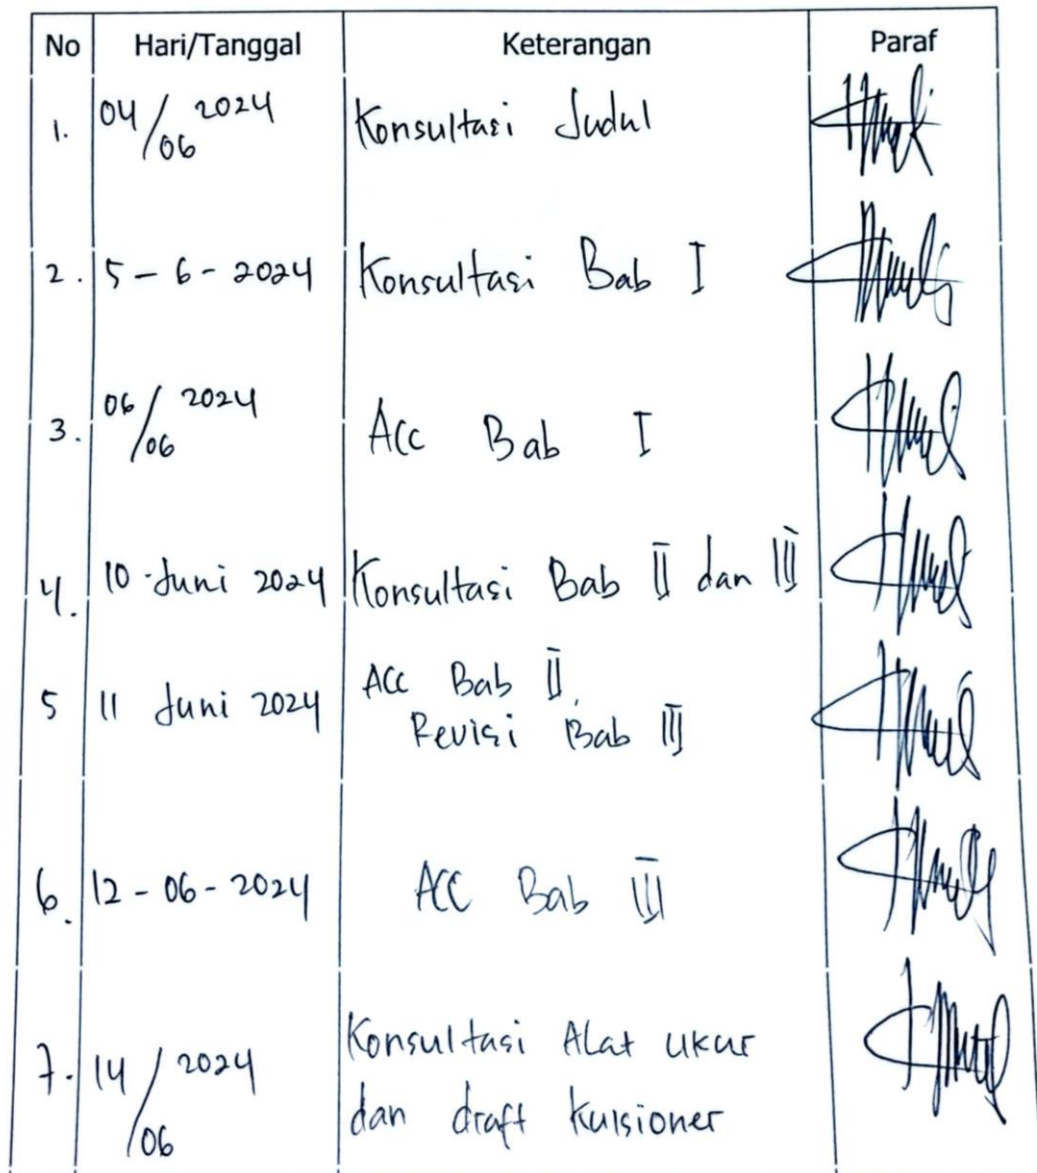 No Hari/Tanggal Keterangan Paraf
1. 04/06 2024 Konsultasi Judul
2. 5-6-2024 Konsultasi Bab I
3. 06/06 2024 Acc Bab I
4. 10 Juni 2024 Konsultasi Bab II dan III
5 11 Juni 2024 Acc Bab II,
Revisi Bab III
6. 12-06-2024 ACC Bab III
7. 14/06 2024 Konsultasi Alat ukur
dan draft kuisioner